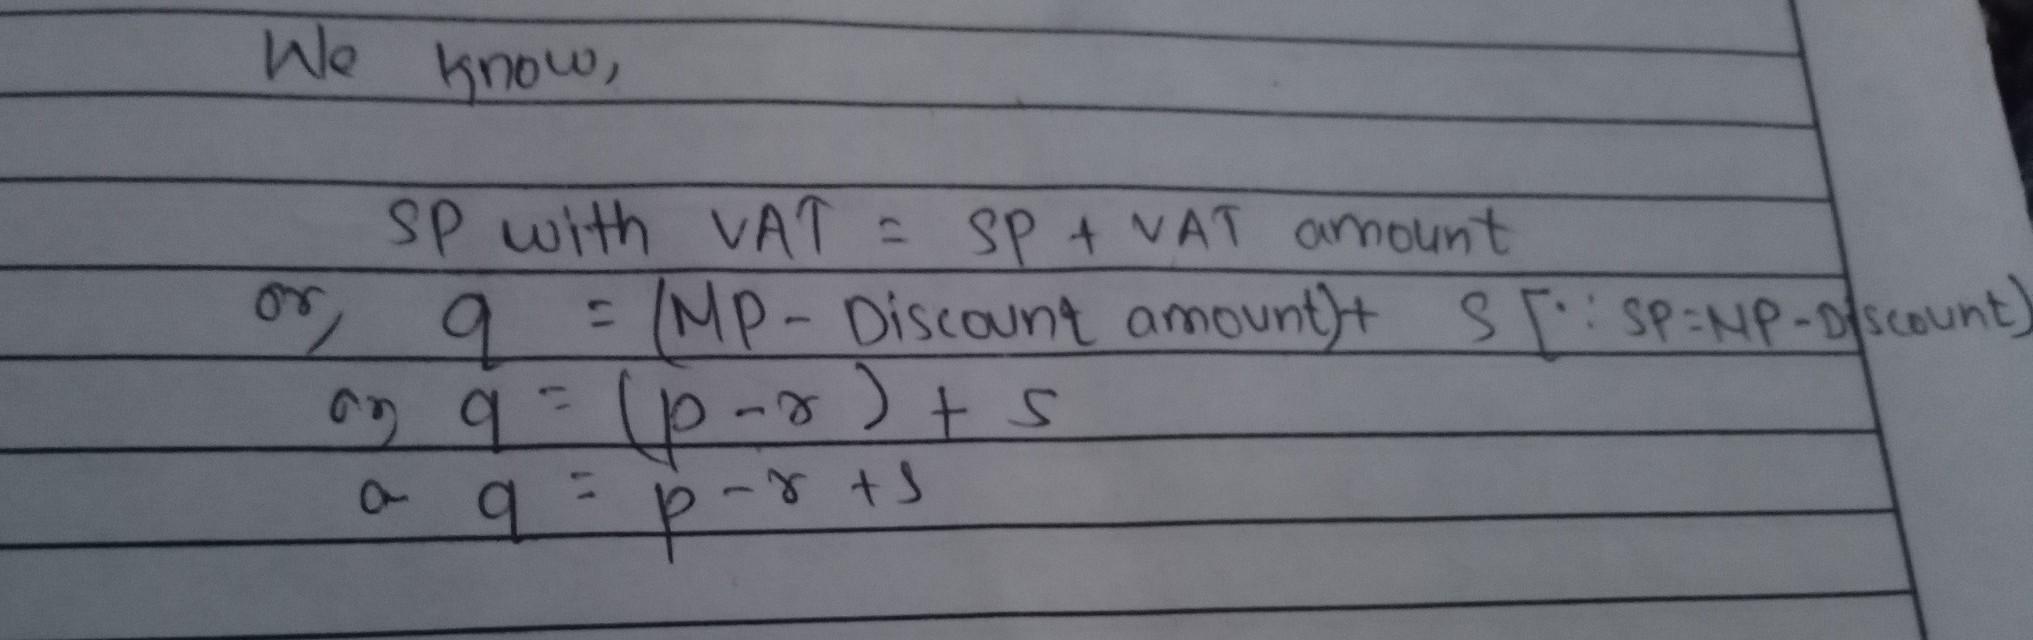 We know,
SP with VAT = SP + VAT amount
or, q = (MP - Discount amount)+ S [∵ SP=MP-Discount)
or, q = (p-r) + s
or q = p-r+s